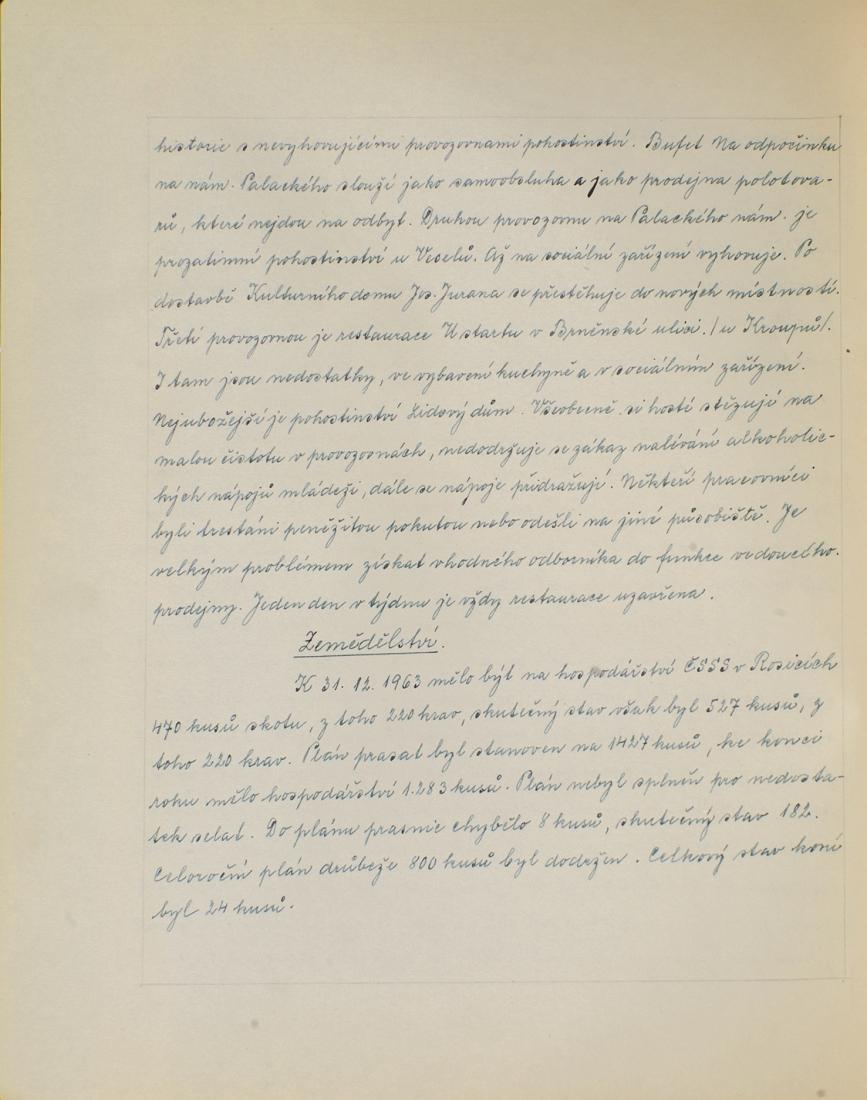 historie s nevyhovujícími provozovnami pohostinství. Bufet Na odpočinku
na nám. Palackého slouží jako samoobsluha a jako prodejna polotova-
rů, které nejdou na odbyt. Druhou provozovnou na Palackého nám. je
prozatimní pohostinství u Veselů. Až na sociální zařízení vyhovuje. Po
dostavbě Kulturního domu Jos. Jurana se přestěhuje do nových místností.
Třetí provozovnou je restaurace U startu v Brněnské ulici. /u Kroupů/.
I tam jsou nedostatky, ve vybavení kuchyně a v sociálním zařízení.
Nejubožejší je pohostinství Lidový dům. Všeobecně si hosté stěžují na
malou čistotu v provozovnách, nedodržuje se zákaz nalévání alkoholic-
kých nápojů mládeži, dále se nápoje předražují. Někteří pracovníci
byli trestáni peněžitou pokutou nebo odešli na jiné působiště. Je
velkým problémem získat vhodného odborníka do funkce vedoucího.
prodejny. Jeden den v týdnu je vždy restaurace uzavřena.
Zemědělství.
K 31. 12. 1963 mělo být na hospodářství ČSSS v Rosicích
470 kusů skotu, z toho 220 krav, skutečný stav však byl 527 kusů, z
toho 220 krav. Plán prasat byl stanoven na 1427 kusů, ke konci
roku mělo hospodářství 1.283 kusů. Plán nebyl splněn pro nedosta-
tek selat. Do plánu prasnic chybělo 8 kusů, skutečný stav 182.
Celoroční plán drůbeže 800 kusů byl dodržen. Celkový stav koní
byl 24 kusů.